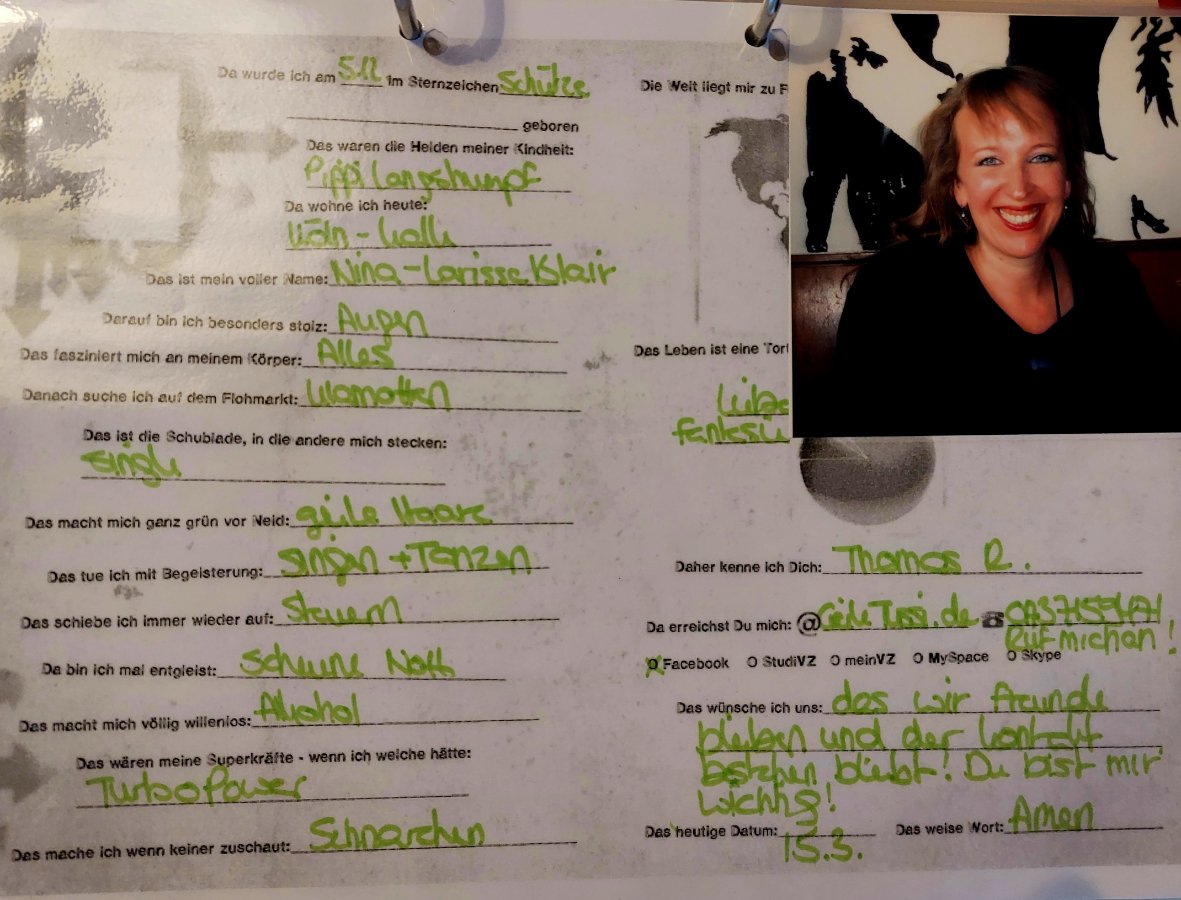 Da wurde ich am 5.12 im Sternzeichen Schütze
geboren
Das waren die Helden meiner Kindheit:
Pippi Langstrumpf
Da wohne ich heute:
Köln - Kalk
Das ist mein voller Name: Nina-Larissa Klair
Darauf bin ich besonders stolz: Augen
Das fasziniert mich an meinem Körper: Alles
Danach suche ich auf dem Flohmarkt: Klamotten
Das ist die Schublade, in die andere mich stecken:
single
Das macht mich ganz grün vor Neid: geile Haare
Das tue ich mit Begeisterung: singen + Tanzen
Das schiebe ich immer wieder auf: Steuern
Da bin ich mal entgleist: Scheune Nolte
Das macht mich völlig willenlos: Alkohol
Das wären meine Superkräfte - wenn ich welche hätte:
TurboPower
Das mache ich wenn keiner zuschaut: Schnarchen
Die Welt liegt mir zu F
Das Leben ist eine Tort
Daher kenne ich Dich: Thomas R.
Da erreichst Du mich: @GeileTussi.de
Ruf mich an!
Facebook O StudiVZ O meinVZ O MySpace O Skype
Das wünsche ich uns: das wir freunde
bleiben und der Kontakt
bestehen bleibt! Du bist mir
wichtig!
Das heutige Datum: 15.3. Das weise Wort: Amen